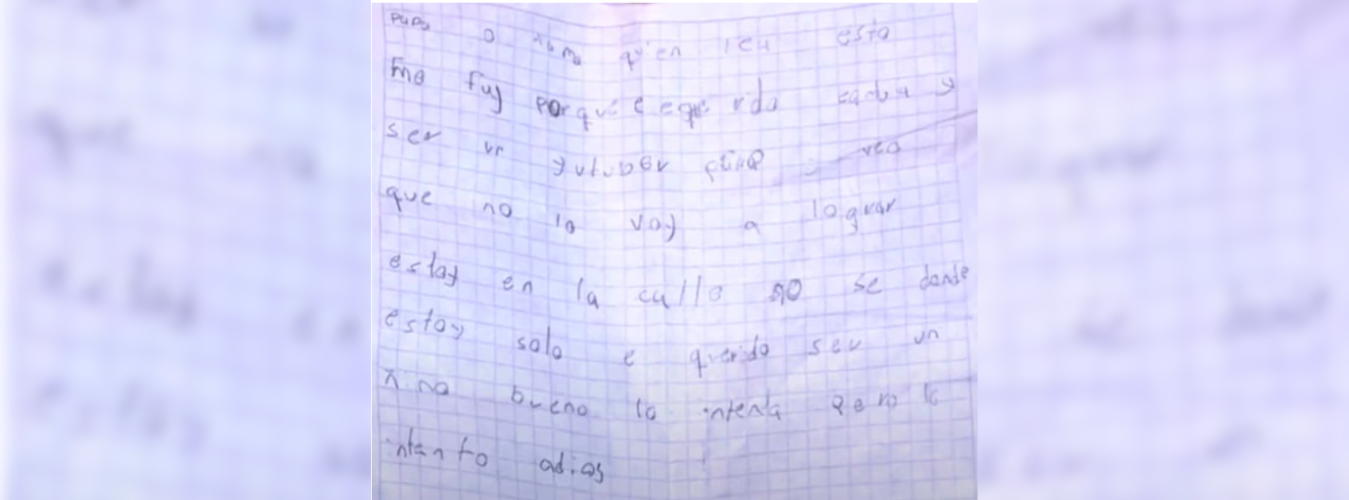 papa o mama quien lea esto
me fuy porque e querido cambia y
ser un yutuber y veo
que no lo voy a lograr
estay en la calle no se donde
estoy solo e querido ser un
nino bueno lo intenta pero lo
intento adios